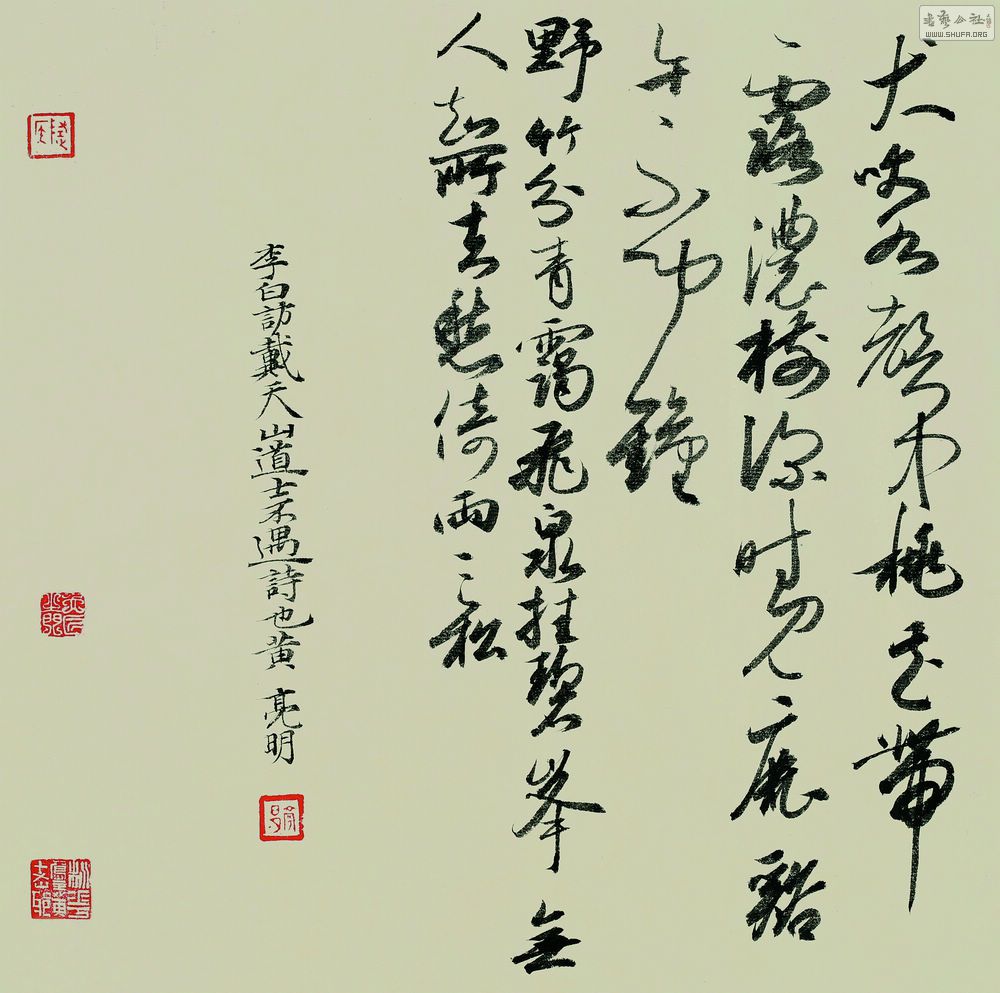 犬吠水聲中桃花帶
露濃樹深時見鹿谿
午不聞鐘
野竹分青靄飛泉挂碧峯無
人知所去愁倚兩三松
李白訪戴天山道士不遇詩也黃亮明
书艺公社
WWW.SHUFA.ORG